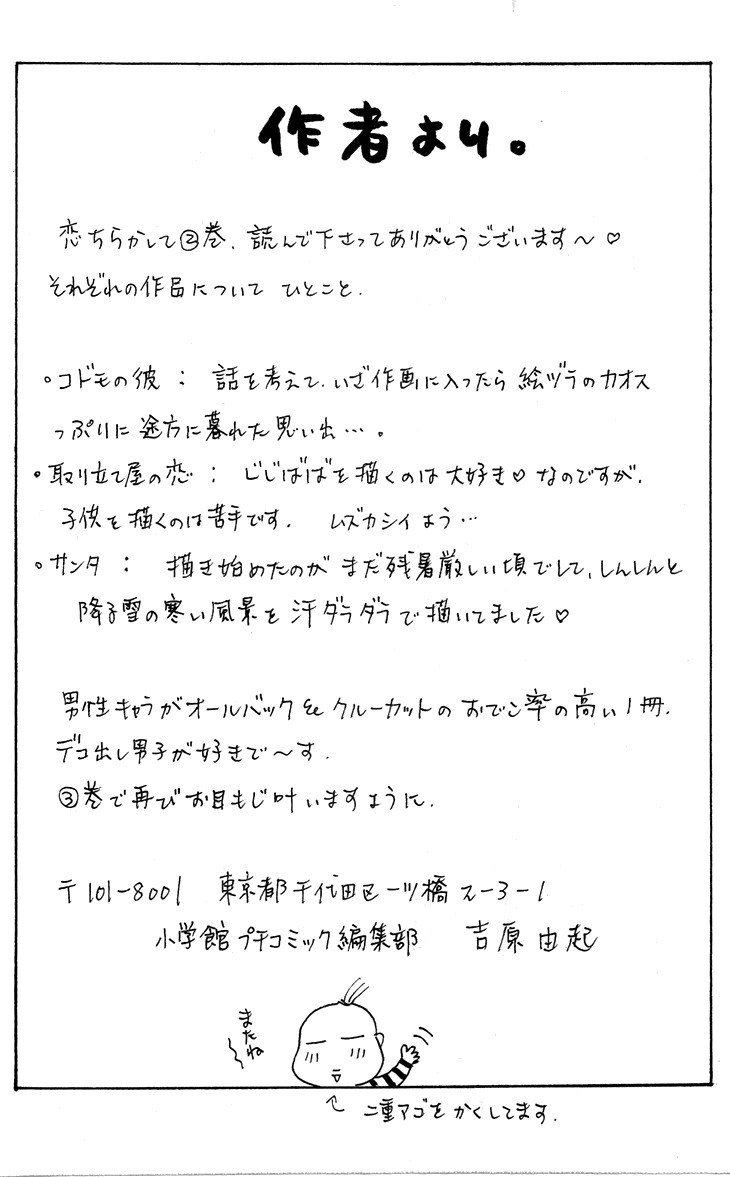 作者より。
恋ちらかして②巻、読んで下さってありがとうございます〜♡
それぞれの作品について ひとこと.
。コドモの彼 : 話を考えて、いざ作画に入ったら 絵ヅラのカオス
っぷりに 途方に暮れた思い出…。
。取り立て屋の恋 : じじばばを描くのは大好き♡ なのですが、
子供を描くのは苦手です. ムズカシイよう…
。サンタ : 描き始めたのが まだ残暑厳しい頃でして、しんしんと
降る雪の寒い風景を汗ダラダラで描いてました♡
男性キャラがオールバック&クルーカットの おでこ率の高い1冊.
デコ出し男子が好きで〜す.
③巻で再びお目もじ叶いますように.
〒101-8001 東京都千代田区一ツ橋2-3-1
小学館プチコミック編集部 吉原由起
またね
二重アゴをかくしてます.